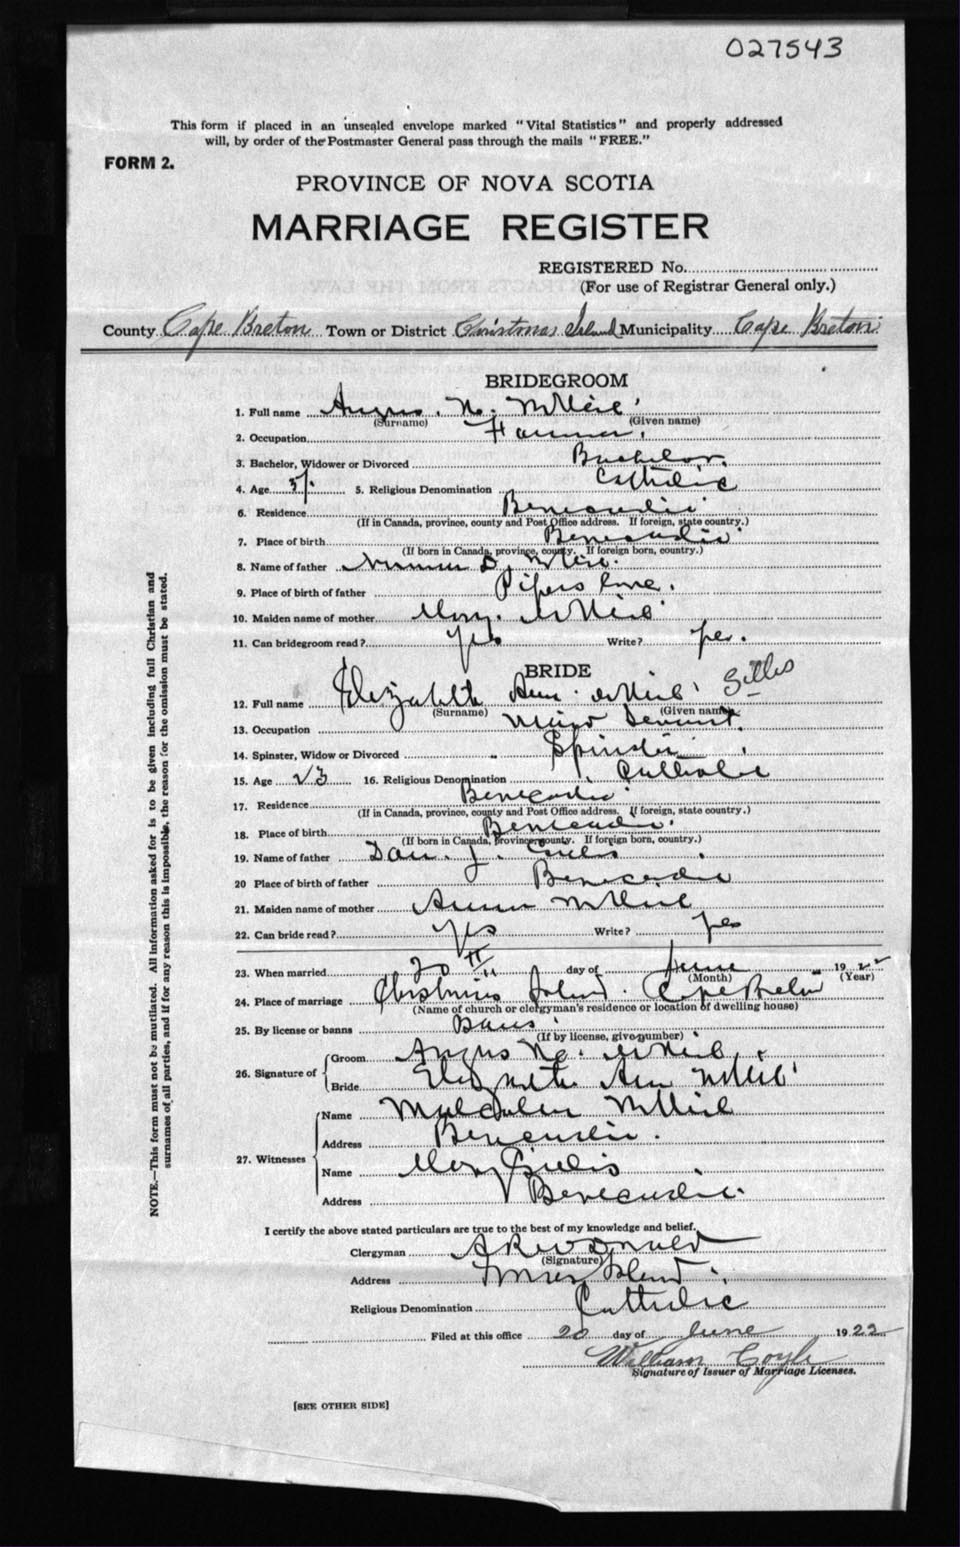 027543
This form if placed in an unsealed envelope marked "Vital Statistics" and properly addressed
will, by order of the Postmaster General pass through the mails "FREE."
FORM 2.
PROVINCE OF NOVA SCOTIA
MARRIAGE REGISTER
REGISTERED No.
(For use of Registrar General only.)
County Cape Breton Town or District Christmas Island Municipality Cape Breton
BRIDEGROOM
1. Full name Angus N. McNeil
(Surname) (Given name)
2. Occupation Farmer
3. Bachelor, Widower or Divorced Bachelor
4. Age 5. Religious Denomination Catholic
6. Residence Benecadie
(If in Canada, province, county and Post Office address. If foreign, state country.)
7. Place of birth Benecadie
(If born in Canada, province, county. If foreign born, country.)
8. Name of father D. McNeil
9. Place of birth of father Pipers Cove
10. Maiden name of mother Mary McNeil
11. Can bridegroom read? yes Write? yes.
BRIDE
12. Full name Elizabeth Ann McNeil Gillis
(Surname) (Given name)
13. Occupation Servant
14. Spinster, Widow or Divorced Spinster
15. Age 23 16. Religious Denomination Catholic
17. Residence Benecadie
(If in Canada, province, county and Post Office address. If foreign, state country.)
18. Place of birth Benecadie
(If born in Canada, province, county. If foreign born, country.)
19. Name of father Dan. J. Gillis
20 Place of birth of father Benecadie
21. Maiden name of mother Annie McNeil
22. Can bride read? yes Write? yes
23. When married 20th day of June 1922
(Month) (Year)
24. Place of marriage Christmas Island. Cape Breton
(Name of church or clergyman's residence or location of dwelling house)
25. By license or banns Banns
(If by license, give number)
26. Signature of Groom Angus N. McNeil
Bride Elizabeth Ann McNeil
27. Witnesses Name Malcolm McNeil
Address Benecadie.
Name Mary Gillis
Address Benecadie.
I certify the above stated particulars are true to the best of my knowledge and belief.
Clergyman McDonald
(Signature)
Address Island
Religious Denomination Catholic
Filed at this office 20 day of June 1922
William Coyle
Signature of Issuer of Marriage Licenses.
[SEE OTHER SIDE]
NOTE.—This form must not be mutilated. All information asked for is to be given including full Christian and
surnames of all parties, and if for any reason this is impossible, the reason for the omission must be stated.